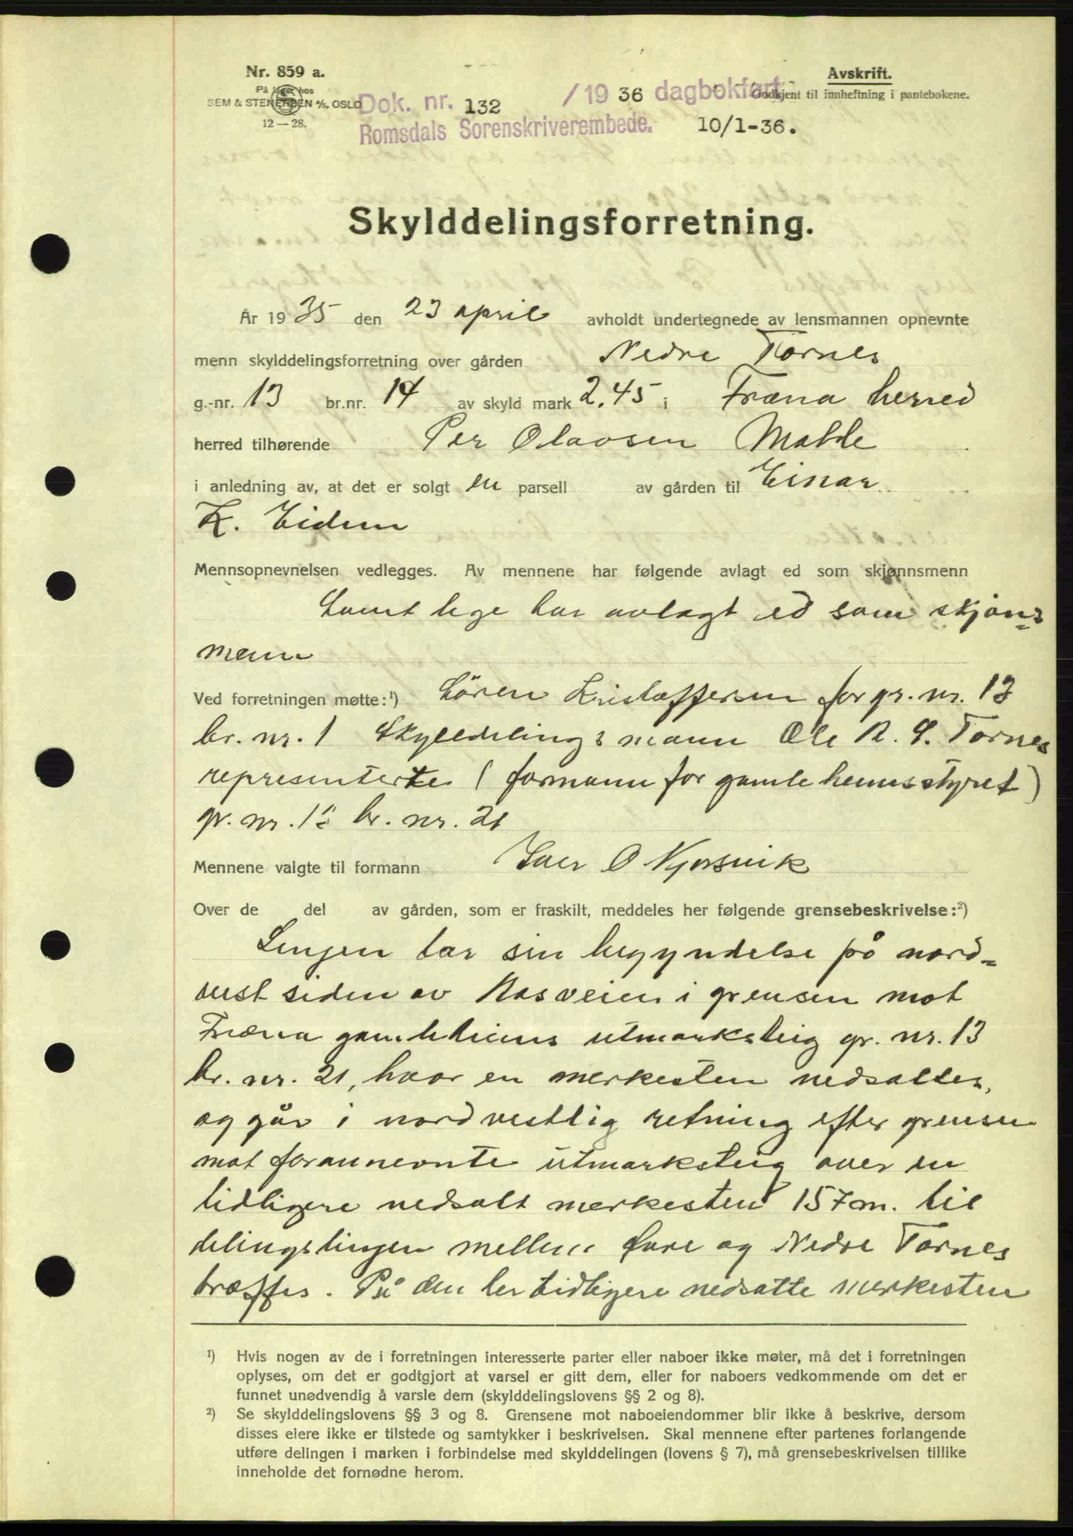 Nr. 859 a.
På lager hos
SEM & STENERSEN A/S, OSLO
12 — 28.
Dok. nr. 132 /19 36 dagbokført
Romsdals Sorenskriverembede. 10/1-36.
Avskrift.
Godkjent til innheftning i pantebøkene.
Skylddelingsforretning.
År 1935 den 23 april avholdt undertegnede av lensmannen opnevnte
menn skylddelingsforretning over gården Nedre Tornes
g.-nr. 13 br.nr. 14 av skyld mark 2.45 i Fræna herred
herred tilhørende Per Olavsen Malde
i anledning av, at det er solgt en parsell av gården til Einar
K. Eidem
Mennsopnevnelsen vedlegges. Av mennene har følgende avlagt ed som skjønnsmenn
Samtlege har avlagt ed som skjøns=
menn
Ved forretningen møtte:¹) Søren Kristoffersen for gr. nr. 13
br. nr. 1 Skylddelingsmann Ole R. S. Tornes
representerte (formann for gamleheimsstyret)
gr. nr. 13 br. nr. 21
Mennene valgte til formann Iver O Njørsvik
Over de del av gården, som er fraskilt, meddeles her følgende grensebeskrivelse:²)
Linjen tar sin begyndelse på nord=
vest siden av Nasveien i grensen mot
Fræna gamleheims utmarksteig gr. nr. 13
br. nr. 21, hvor en merkesten nedsattes,
og går i nordvestlig retning efter grensen
mot forannevnte utmarksteig over en
tidligere nedsatt merkesten 157m. til
delingslinjen mellem Øvre og Nedre Tornes
træffes. På den her tidligere nedsatte merkesten
¹) Hvis nogen av de i forretningen interesserte parter eller naboer ikke møter, må det i forretningen
oplyses, om det er godtgjort at varsel er gitt dem, eller for naboers vedkommende om det er
funnet unødvendig å varsle dem (skylddelingslovens §§ 2 og 8).
²) Se skylddelingslovens §§ 3 og 8. Grensene mot naboeiendommer blir ikke å beskrive, dersom
disses eiere ikke er tilstede og samtykker i beskrivelsen. Skal mennene efter partenes forlangende
utføre delingen i marken i forbindelse med skylddelingen (lovens § 7), må grensebeskrivelsen tillike
inneholde det fornødne herom.